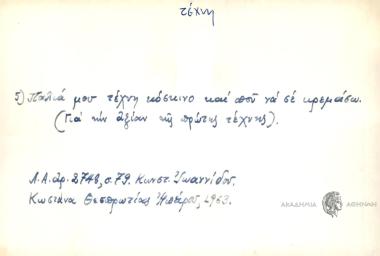 τέχνη
5) Παλιά μου τέχνη κόσκινο και ποῦ νά σέ κρεμάσω.
(Γιά τήν ἀξίαν τῆς πρώτης τέχνης).
Λ.Α. ἀρ. 2748, σ. 79. Κωνστ. Ἰωαννίδου.
Κωστάνα Θεσπρωτίας Ἠπείρου, 1963.
ΑΚΑΔΗΜΙΑ ΑΘΗΝΩΝ